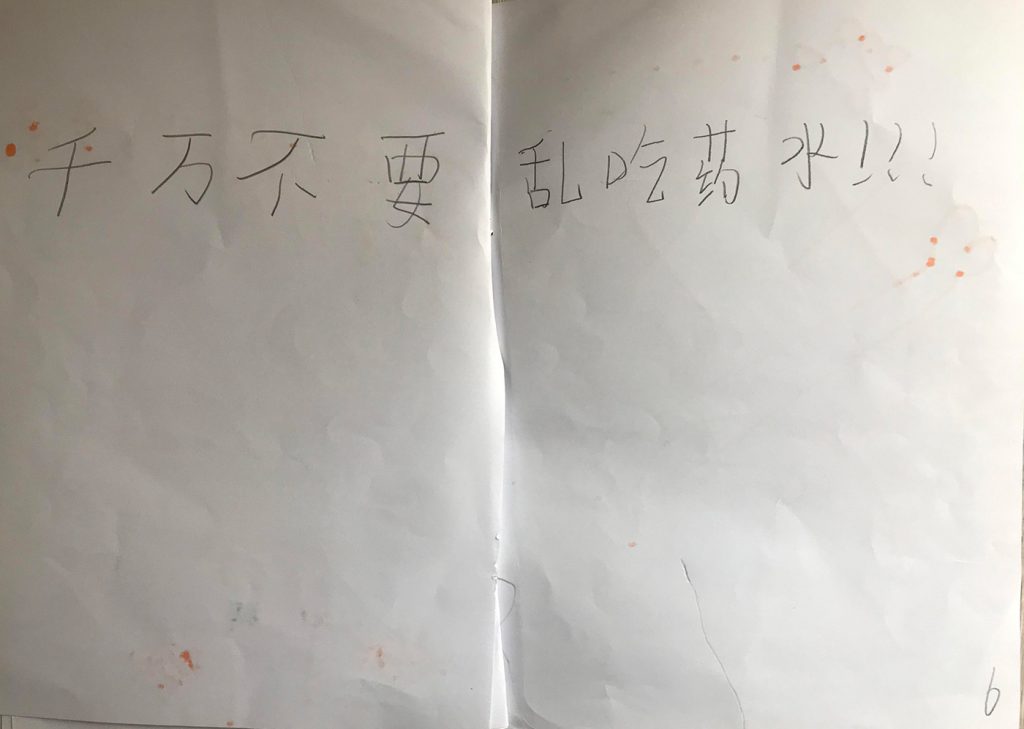 千万不要乱吃药水!!!
6